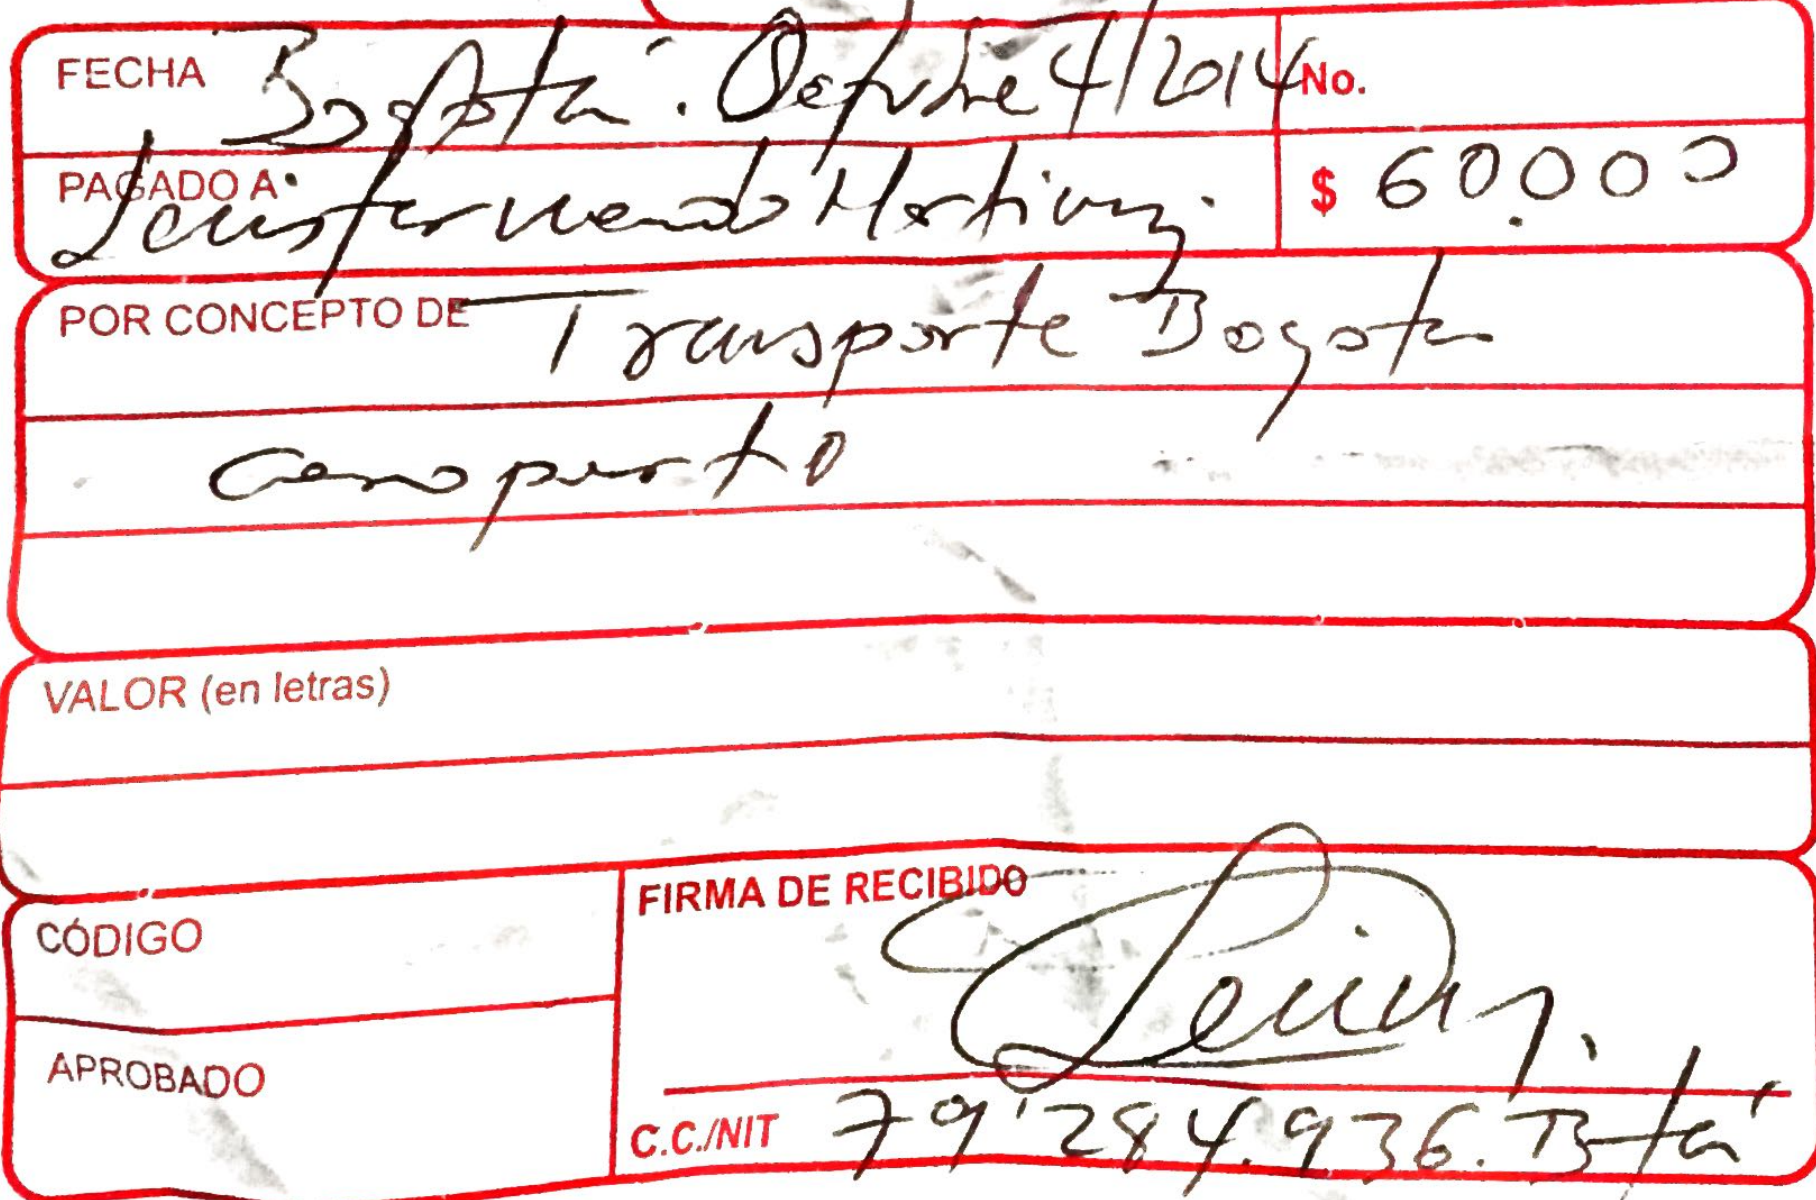 FECHA Bogotá. Octubre 4/2014 No.
PAGADO A: Luis fernando Martinez. $ 60.000
POR CONCEPTO DE Transporte Bogota
aeropuerto
VALOR (en letras)
CÓDIGO
FIRMA DE RECIBIDO
APROBADO
C.C./NIT 79'284.936. Btá